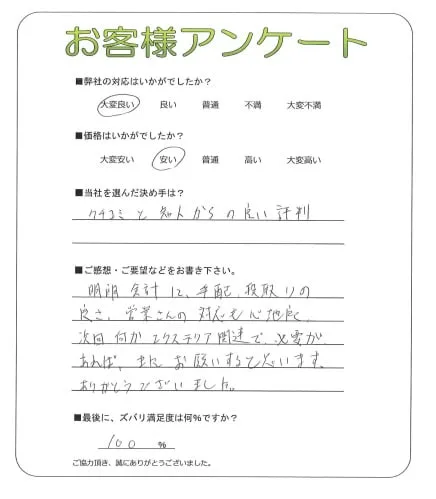 お客様アンケート
■弊社の対応はいかがでしたか？
大変良い 良い 普通 不満 大変不満
■価格はいかがでしたか？
大変安い 安い 普通 高い 大変高い
■当社を選んだ決め手は？
クチコミと知人からの良い評判
■ご感想・ご要望などをお書き下さい。
明朗会計に、手配、段取りの
良さ、営業さんの対応も心地良く
次回何かエクステリア関連で、必要が
あれば、またお願いすると思います。
ありがとうございました。
■最後に、ズバリ満足度は何%ですか？
100 %
ご協力頂き、誠にありがとうございました。